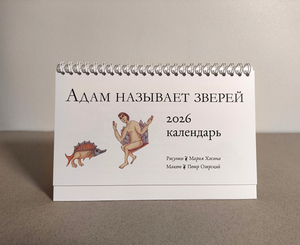 Адам называет зверей
2026
календарь
Рисунки Марья Хосина
Макет Петр Озерский